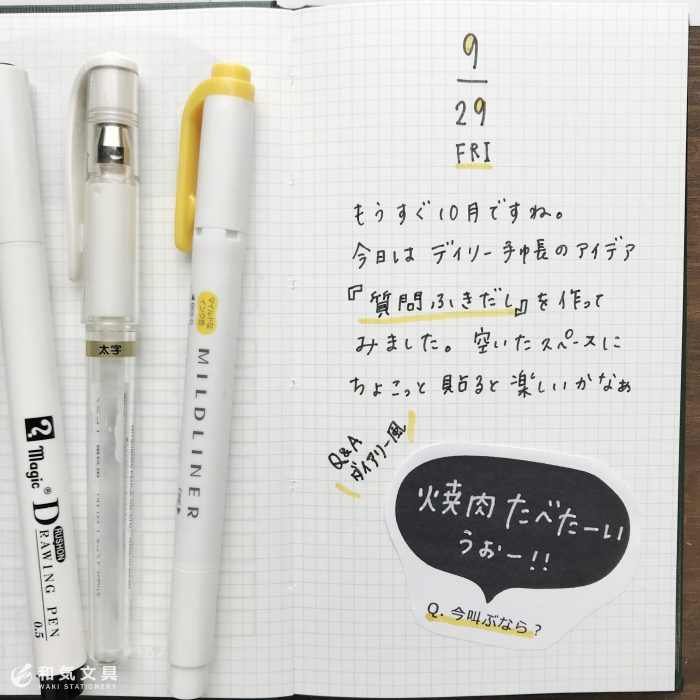 9
29
FRI
もうすぐ10月ですね。
今日は デイリー手帳のアイデア
『質問ふきだし』を作って
みました。空いたスペースに
ちょこっと貼ると楽しいかなぁ
Q&A
ダイアリー風
焼肉たべたーい
うおー!!
Q. 今叫ぶなら?
太字
マイルドな
インク色
BOLD
MILDLINER
FINE
Magic®
DRAWING PEN
RUSHON
0.5
和気文具
WAKI STATIONERY